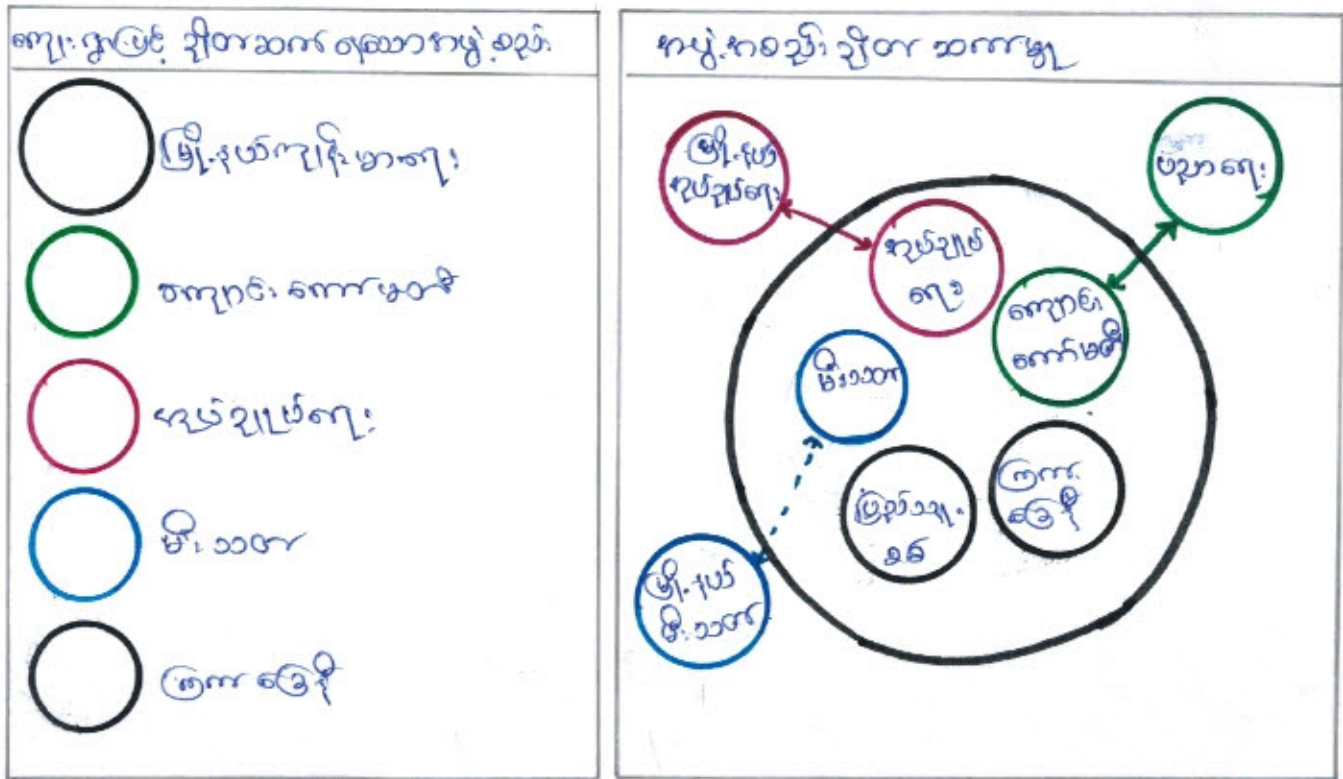 ကျေးရွာဖြင့် ချိတ်ဆက်ရသောအဖွဲ့စည်း
မြို့နယ်ကျန်းမာရေး
ကျောင်းကော်မတီ
အုပ်ချုပ်ရေး
မီးသတ်
ကြက်ခြေနီ
အဖွဲ့အစည်းချိတ်ဆက်မှု
မြို့နယ်
အုပ်ချုပ်ရေး
ပညာရေး
အုပ်ချုပ်
ရေး
ကျောင်း
ကော်မတီ
မီးသတ်
ကြက်
ခြေနီ
ပြည်သူ့
စစ်
မြို့နယ်
မီးသတ်